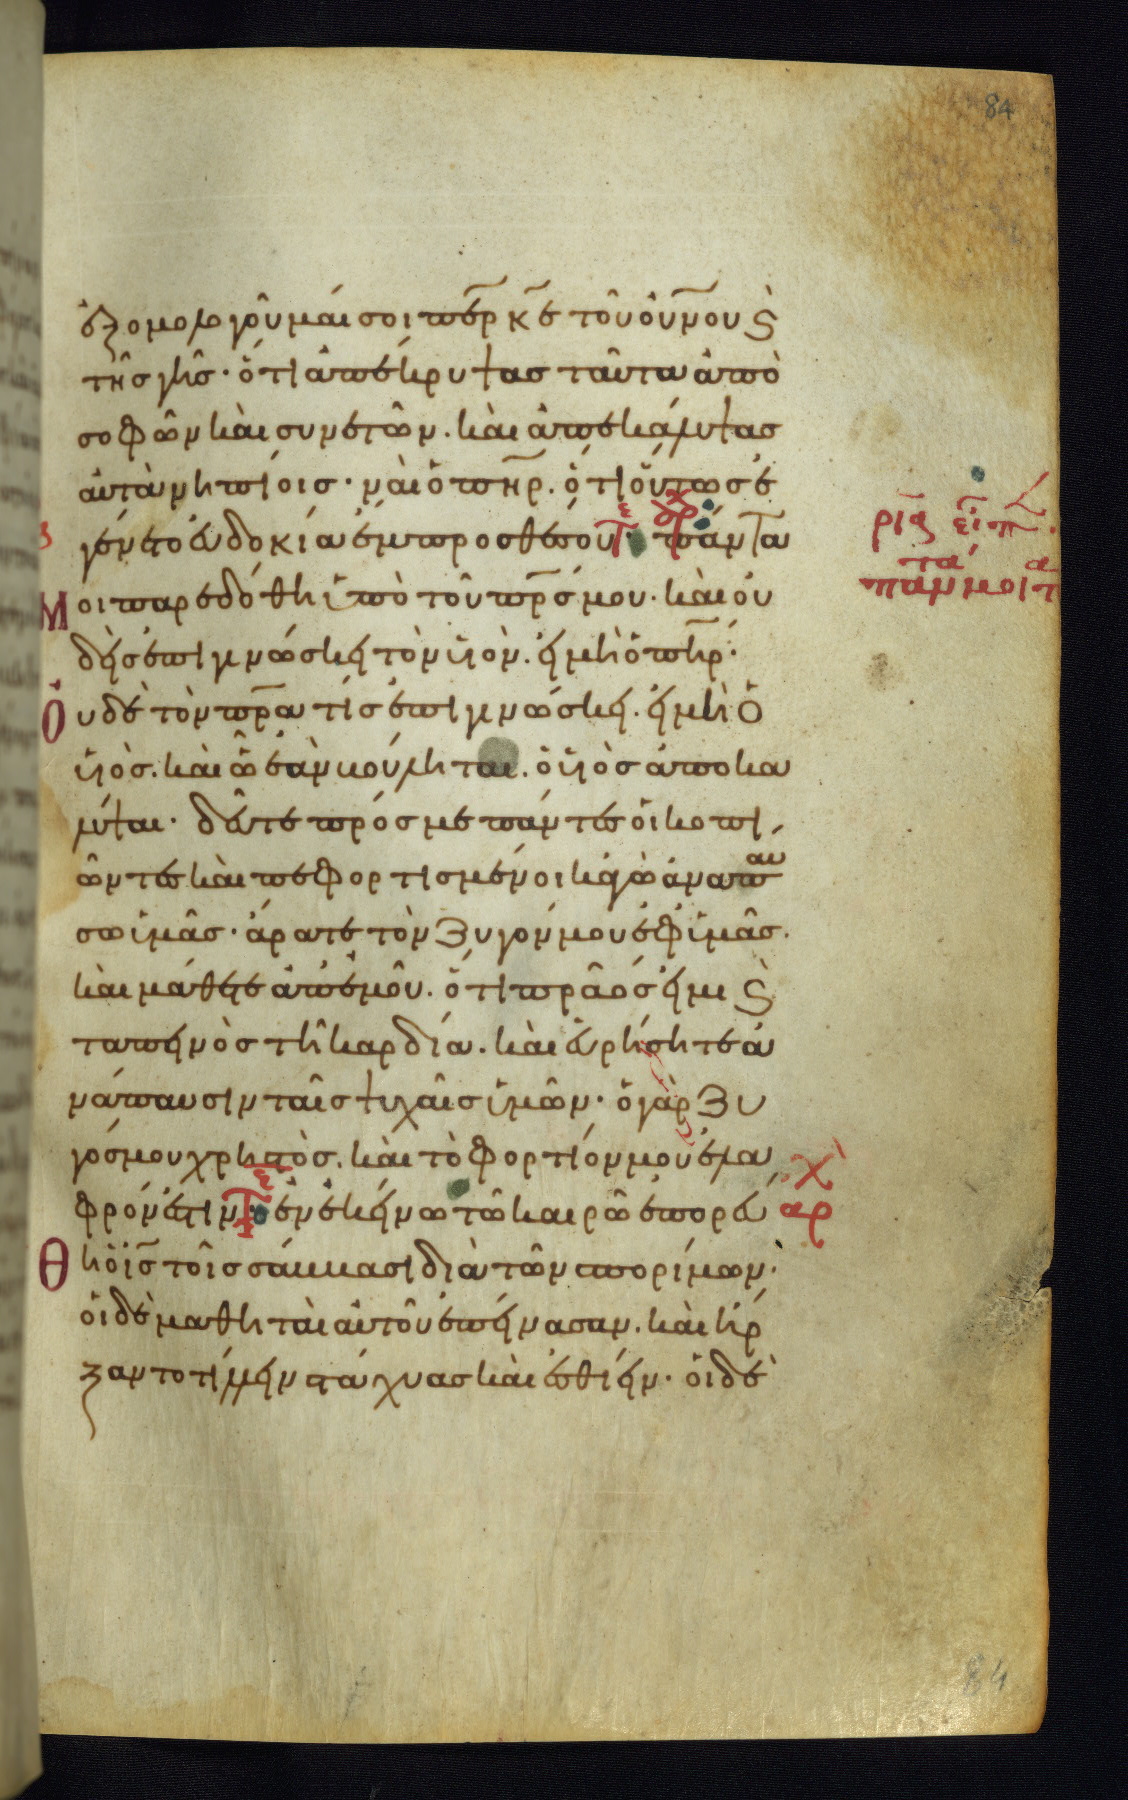 84
ἐξομολογοῦμαί σοι πε̄ρ κ̄ε τοῦ οὐν̄ου ϛ̀
τῆς γῆς· ὅτι ἀπέκρυψας ταῦτα ἀπὸ
σοφῶν καὶ συνετῶν. καὶ ἀπεκάλυψας
αὐτὰ νηπίοις· ναὶ ὁ π̄ηρ. ὅτι οὕτως ἐ
γένετο εὐδοκία ἔμπροσθέν σου· πάντα
μοι παρεδόθη ὑπὸ τοῦ πρ̄ς μου. καὶ οὐ
δεὶς ἐπιγινώσκει τὸν υἱὸν. εἰ μὴ ὁ π̄ηρ·
Οὐδὲ τὸν πρ̄α τίς ἐπιγινώσκει. εἰ μὴ ὁ
υἱὸς. καὶ ᾧ ἐὰν βούληται. ὁ υἱὸς ἀποκα
λύψαι· δεῦτε πρός με πάντες οἱ κοπι
ῶντες καὶ πεφορτισμένοι κἀγὼ ἀναπαύ
σω ὑμᾶς· ἄρατε τὸν ζυγόν μου ἐφ ὑμᾶς.
καὶ μάθετε ἀπ ἐμοῦ. ὅτι πρᾶός εἰμι ϛ̀
ταπεινὸς τῆ καρδία. καὶ εὑρήσητε ἀ
νάπαυσιν ταῖς ψυχαῖς ὑμῶν· ὁ γὰρ ζυ
γός μου χρηστὸς. καὶ τὸ φορτίον μου ἐλα
φρόν ἐστιν· ἐν ἐκείνω τῶ καιρῶ ἐπορεύ
θη ὁ ῑς τοῖς σάββασι διὰ τῶν σπορίμων·
οἱ δὲ μαθηταὶ αὐτοῦ ἐπείνασαν. καὶ ἤρ
ξαντο τίλλειν στάχυας καὶ ἐσθίειν· οἱ δὲ
αρχ
84